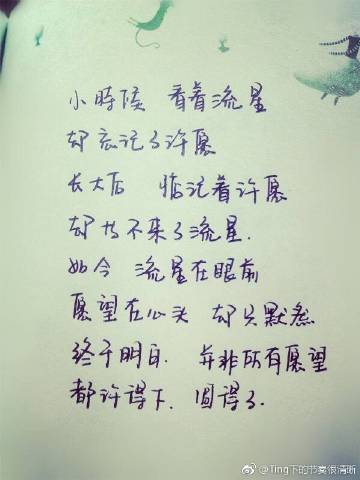 小時候 看着流星
却忘记了许愿
长大后 惦记着许愿
却找不来了流星.
如今 流星在眼前
愿望在心头 却只默然
终于明白. 并非所有愿望
都许得下. 圆得了.
@Ting下的节奏很清晰